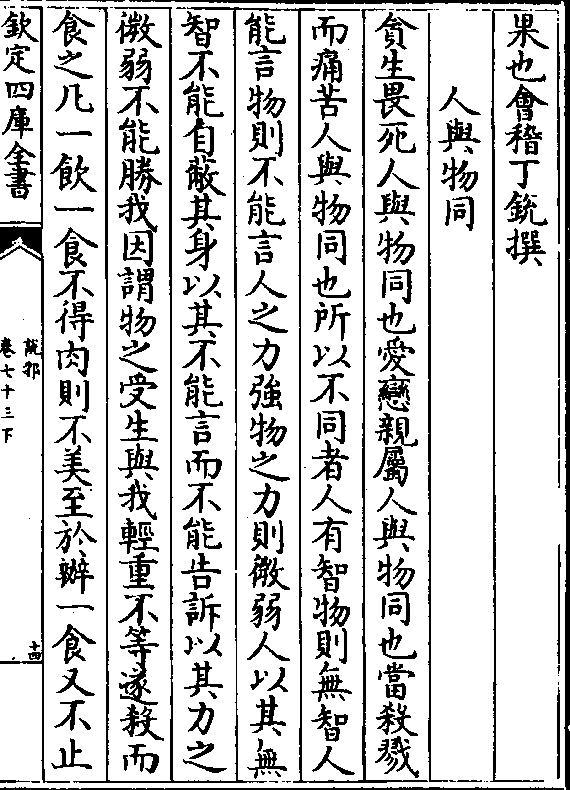 果也會稽丁銃撰
人與物同
貪生畏死人與物同也愛戀親屬人與物同也當殺戮
而痛苦人與物同也所以不同者人有智物則無智人
能言物則不能言人之力強物之力則微弱人以其無
智不能自蔽其身以其不能言而不能告訴以其力之
微弱不能勝我因謂物之受生與我輕重不等遂殺而
食之凡一飲一食不得肉則不美至於辦一食又不止
欽定四庫全書
說郛
卷七十三下
十四